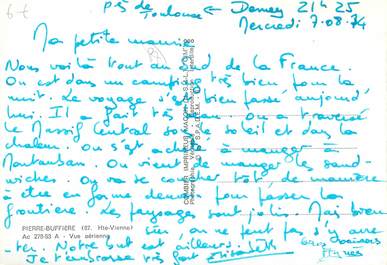 près de Toulouse ← Damery 21h25
Mercredi 7-08-74
Ma petite mamie
Nous voilà tout au sud de la France.
On est dans un camping très bien pour la
nuit. Le voyage s'est bien passé aujourd'
hui. Il a fait très On a traversé
le Massif Central sous soleil et dans la
chaleur. On s'est acheté à manger à
Montauban. On vient de manger les sand-
wiches. On va se coucher tôt de manière
à être en forme demain pour passer la
frontière. Les paysages sont jolis. Mais bien
sûr, on ne peut pas s'arrê-
ter. Notre but est ailleurs.
Je t'embrasse très fort Elisabeth
Gros
PIERRE-BUFFIÈRE (87. Hte-Vienne)
Ac 278-53 A - Vue aérienne
COMBIER IMPRIMEUR MACON
S.P.A.D.E.M.